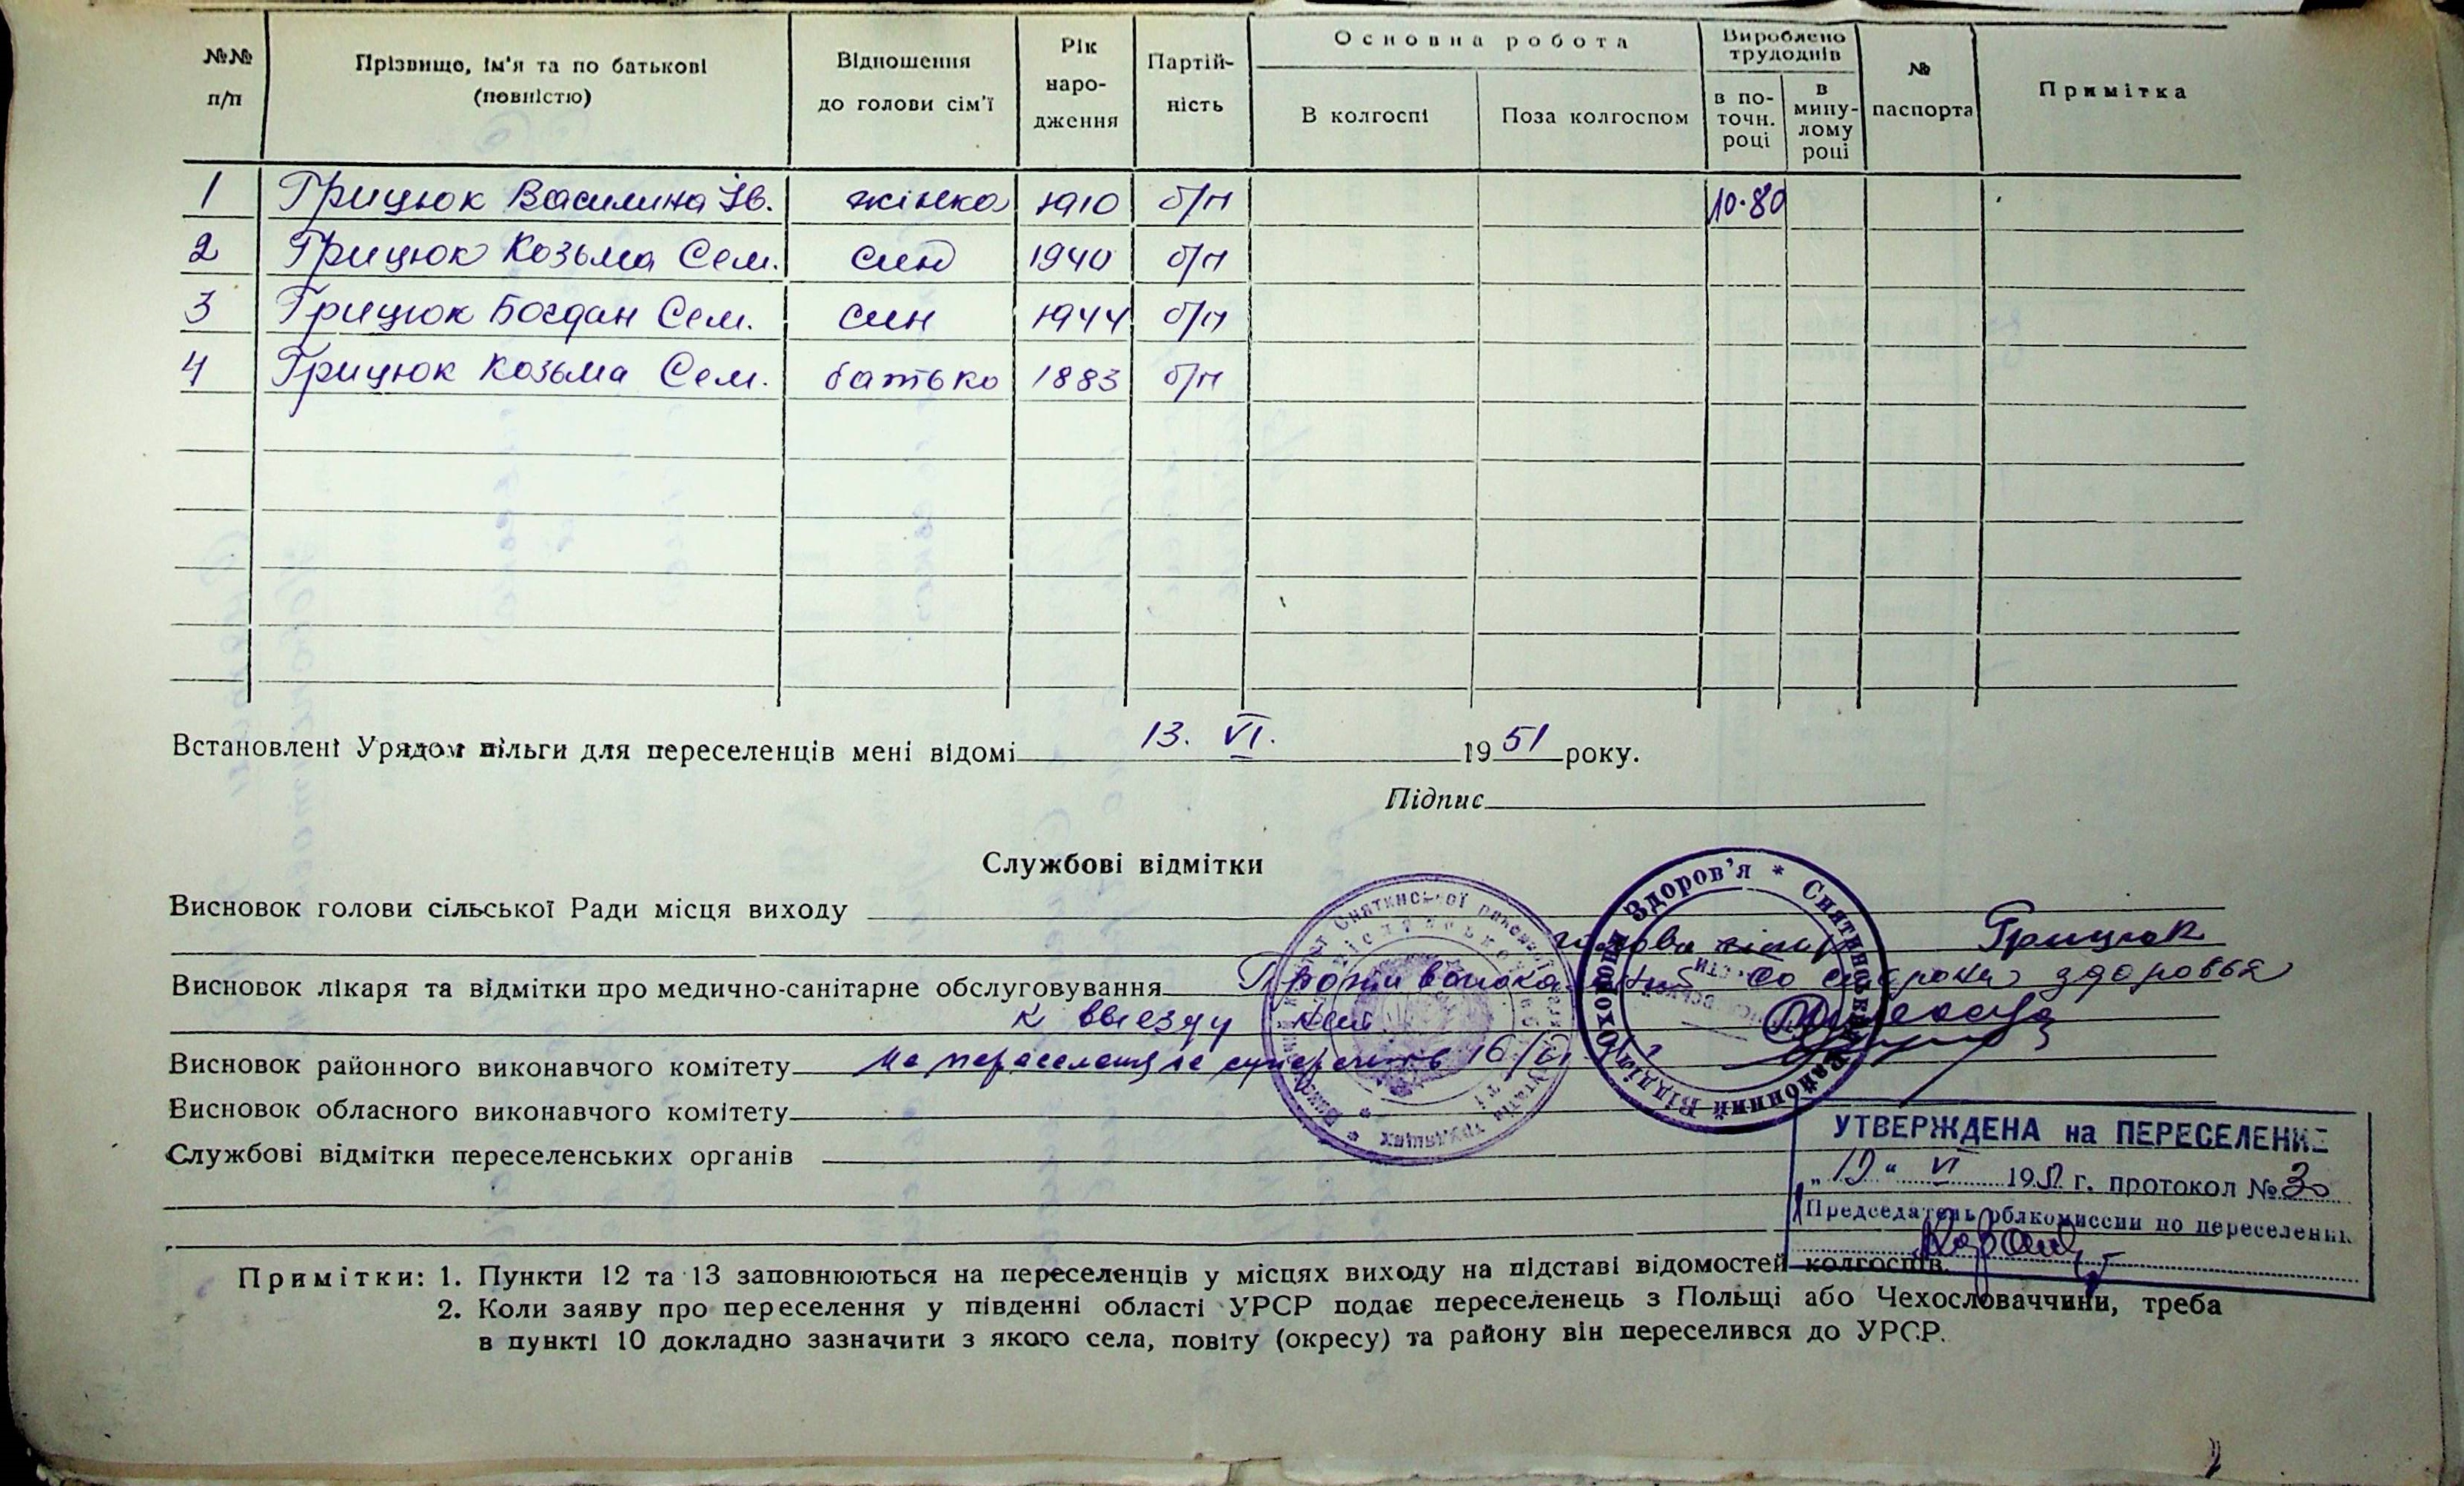 №№ п/п
Прізвище, ім'я та по батькові (повністю)
Відношення до голови сім'ї
Рік народження
Партійність
Основна робота
В колгоспі
Поза колгоспом
Вироблено трудоднів
в поточн. році
в минулому році
№ паспорта
Примітка
1 Грицюк Василина Ів. жінка 1910 б/п 10.80
2 Грицюк Козьма Сем. син 1940 б/п
3 Грицюк Богдан Сем. син 1944 б/п
4 Грицюк Козьма Сем. батько 1883 б/п
Встановлені Урядом пільги для переселенців мені відомі 13. VI. 1951 року.
Підпис
Службові відмітки
Висновок голови сільської Ради місця виходу
голова Грицюк
Висновок лікаря та відмітки про медично-санітарне обслуговування со стороны здоровья
к выезду нет
Висновок районного виконавчого комітету 16/VI
Висновок обласного виконавчого комітету
Службові відмітки переселенських органів
Снятинської районної
Районний Відділ Охорони Здоров'я * Снятинський
УТВЕРЖДЕНА на ПЕРЕСЕЛЕНИЕ
"19" VI 1951 г. протокол № 30
Председатель облкомиссии по переселению
Примітки: 1. Пункти 12 та 13 заповнюються на переселенців у місцях виходу на підставі відомостей колгоспів.
2. Коли заяву про переселення у південні області УРСР подає переселенець з Польщі або Чехословаччини, треба
в пункті 10 докладно зазначити з якого села, повіту (окресу) та району він переселився до УРСР.